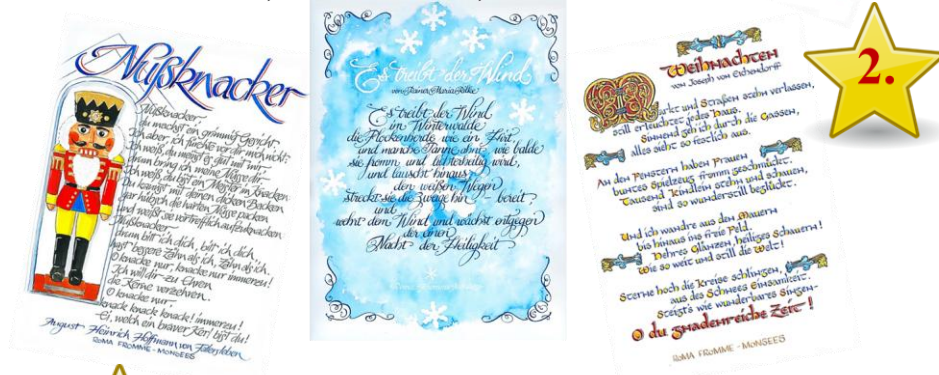 Nußknacker
Nußknacker,
du machst ein grimmig Gesicht -
Ich aber, ich fürchte vor dir mich nicht:
Ich weiß, du meinst es gut mit mir,
drum bring ich meine Nüsse dir.
Ich weiß, du bist ein Meister im Knacken:
Du kannst mit deinen dicken Backen
gar hübsch die harten Nüsse packen
und weißt sie vortrefflich aufzuknacken.
Nußknacker,
drum bitt' ich dich, bitt' ich dich,
hast beßere Zähn als ich, Zähn als ich.
O knacke nur, knacke nur immerzu!
Ich will dir zu Ehren
die Kerne verzehren.
O knacke nur -
knack knack knack! immerzu!
Ei, welch ein braver Kerl bist du!
August Heinrich Hoffmann von Fallersleben
ROMA FROMME - MONSEES
Es treibt der Wind
von Rainer Maria Rilke
Es treibt der Wind
im Winterwalde
die Flockenherde wie ein Hirt,
und manche Tanne ahnt, wie balde
sie fromm und lichterheilig wird;
und lauscht hinaus
den weißen Wegen
streckt sie die Zweige hin - bereit,
und
wehrt dem Wind und wächst entgegen
der einen
Nacht der Heiligkeit
Weihnachten
von Joseph von Eichendorff
Markt und Straßen stehn verlassen,
still erleuchtet jedes Haus.
Sinnend geh ich durch die Gassen,
alles sieht so festlich aus.
An den Fenstern haben Frauen
buntes Spielzeug fromm geschmückt.
Tausend Kindlein stehn und schauen,
sind so wunderstill beglückt.
Und ich wandre aus den Mauern
bis hinaus ins freie Feld.
Hehres Glänzen, heiliges Schauern!
Wie so weit und still die Welt!
Sterne hoch die Kreise schlingen,
aus des Schnees Einsamkeit
Steigt's wie wunderbares Singen-
O du gnadenreiche Zeit!
ROMA FROMME - MONSEES
2.